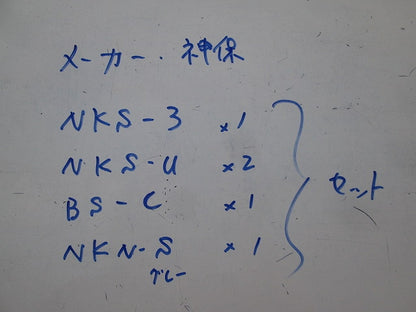 メーカー・神保
NKS-3 ×1
NKS-U ×2
BS-C ×1
NKN-S ×1
グレー
セット